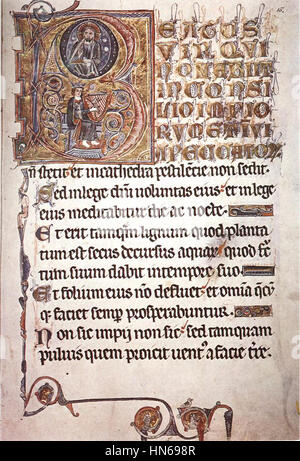 BEATUS
VIR QVI
NON ABIIT
IN CONSI
LIO IMPIO
RVM ET I VI
A PECCATOR
n̄ stetit et in cathedra pestilencie non sedit.
Sed in lege dn̄i uoluntas eius et in lege
eius meditabitur die ac nocte.
Et erit tamqm̄ lignum quod planta
tum est secus decursus aquaꝝ quod fc̄
tum suum dabit in tempore suo.
Et folium eius nō defluet et omīa qc̄q
q̄ faciet semꝑ prosperabuntur.
Non sic impij non sic sed tamquam
puluis quem proicit uentꝰ a facie tr̄e.
HN698R